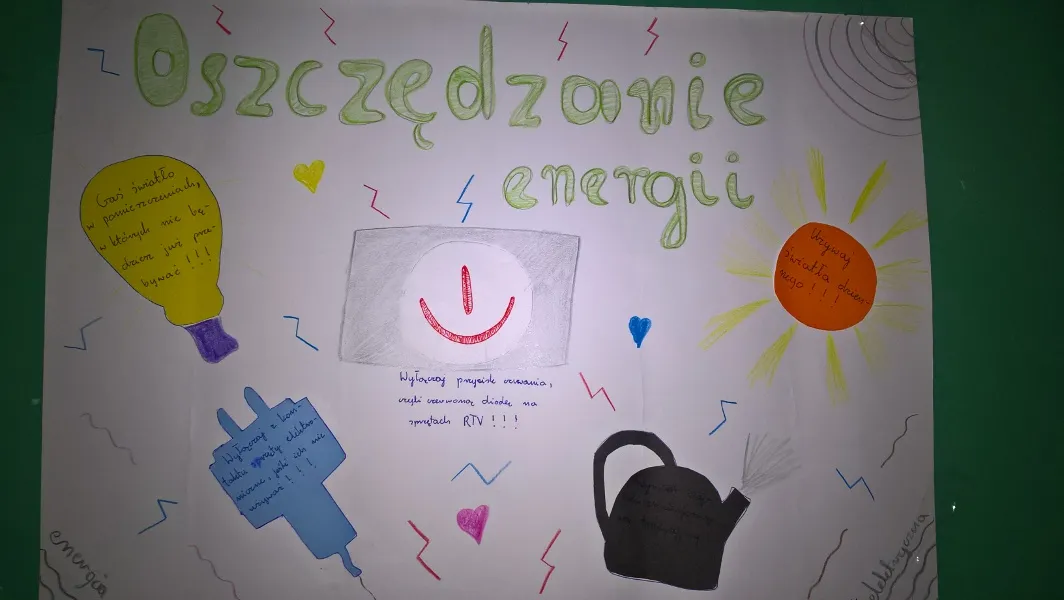 Oszczędzanie
energii
Gaś światło
w pomieszczeniach,
w których nie bę-
dziesz już prze-
bywać!!!
Używaj
światła dzien-
nego!!!
Wyłączaj przycisk czuwania,
czyli czerwoną diodę na
sprzętach RTV!!!
Wyłączaj z kon-
taktu sprzęty elektro-
niczne, jeśli ich nie
używasz!!!
energia
elektryczna